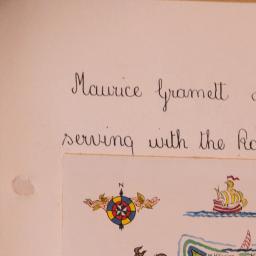 Maurice Gramett
serving with the
N